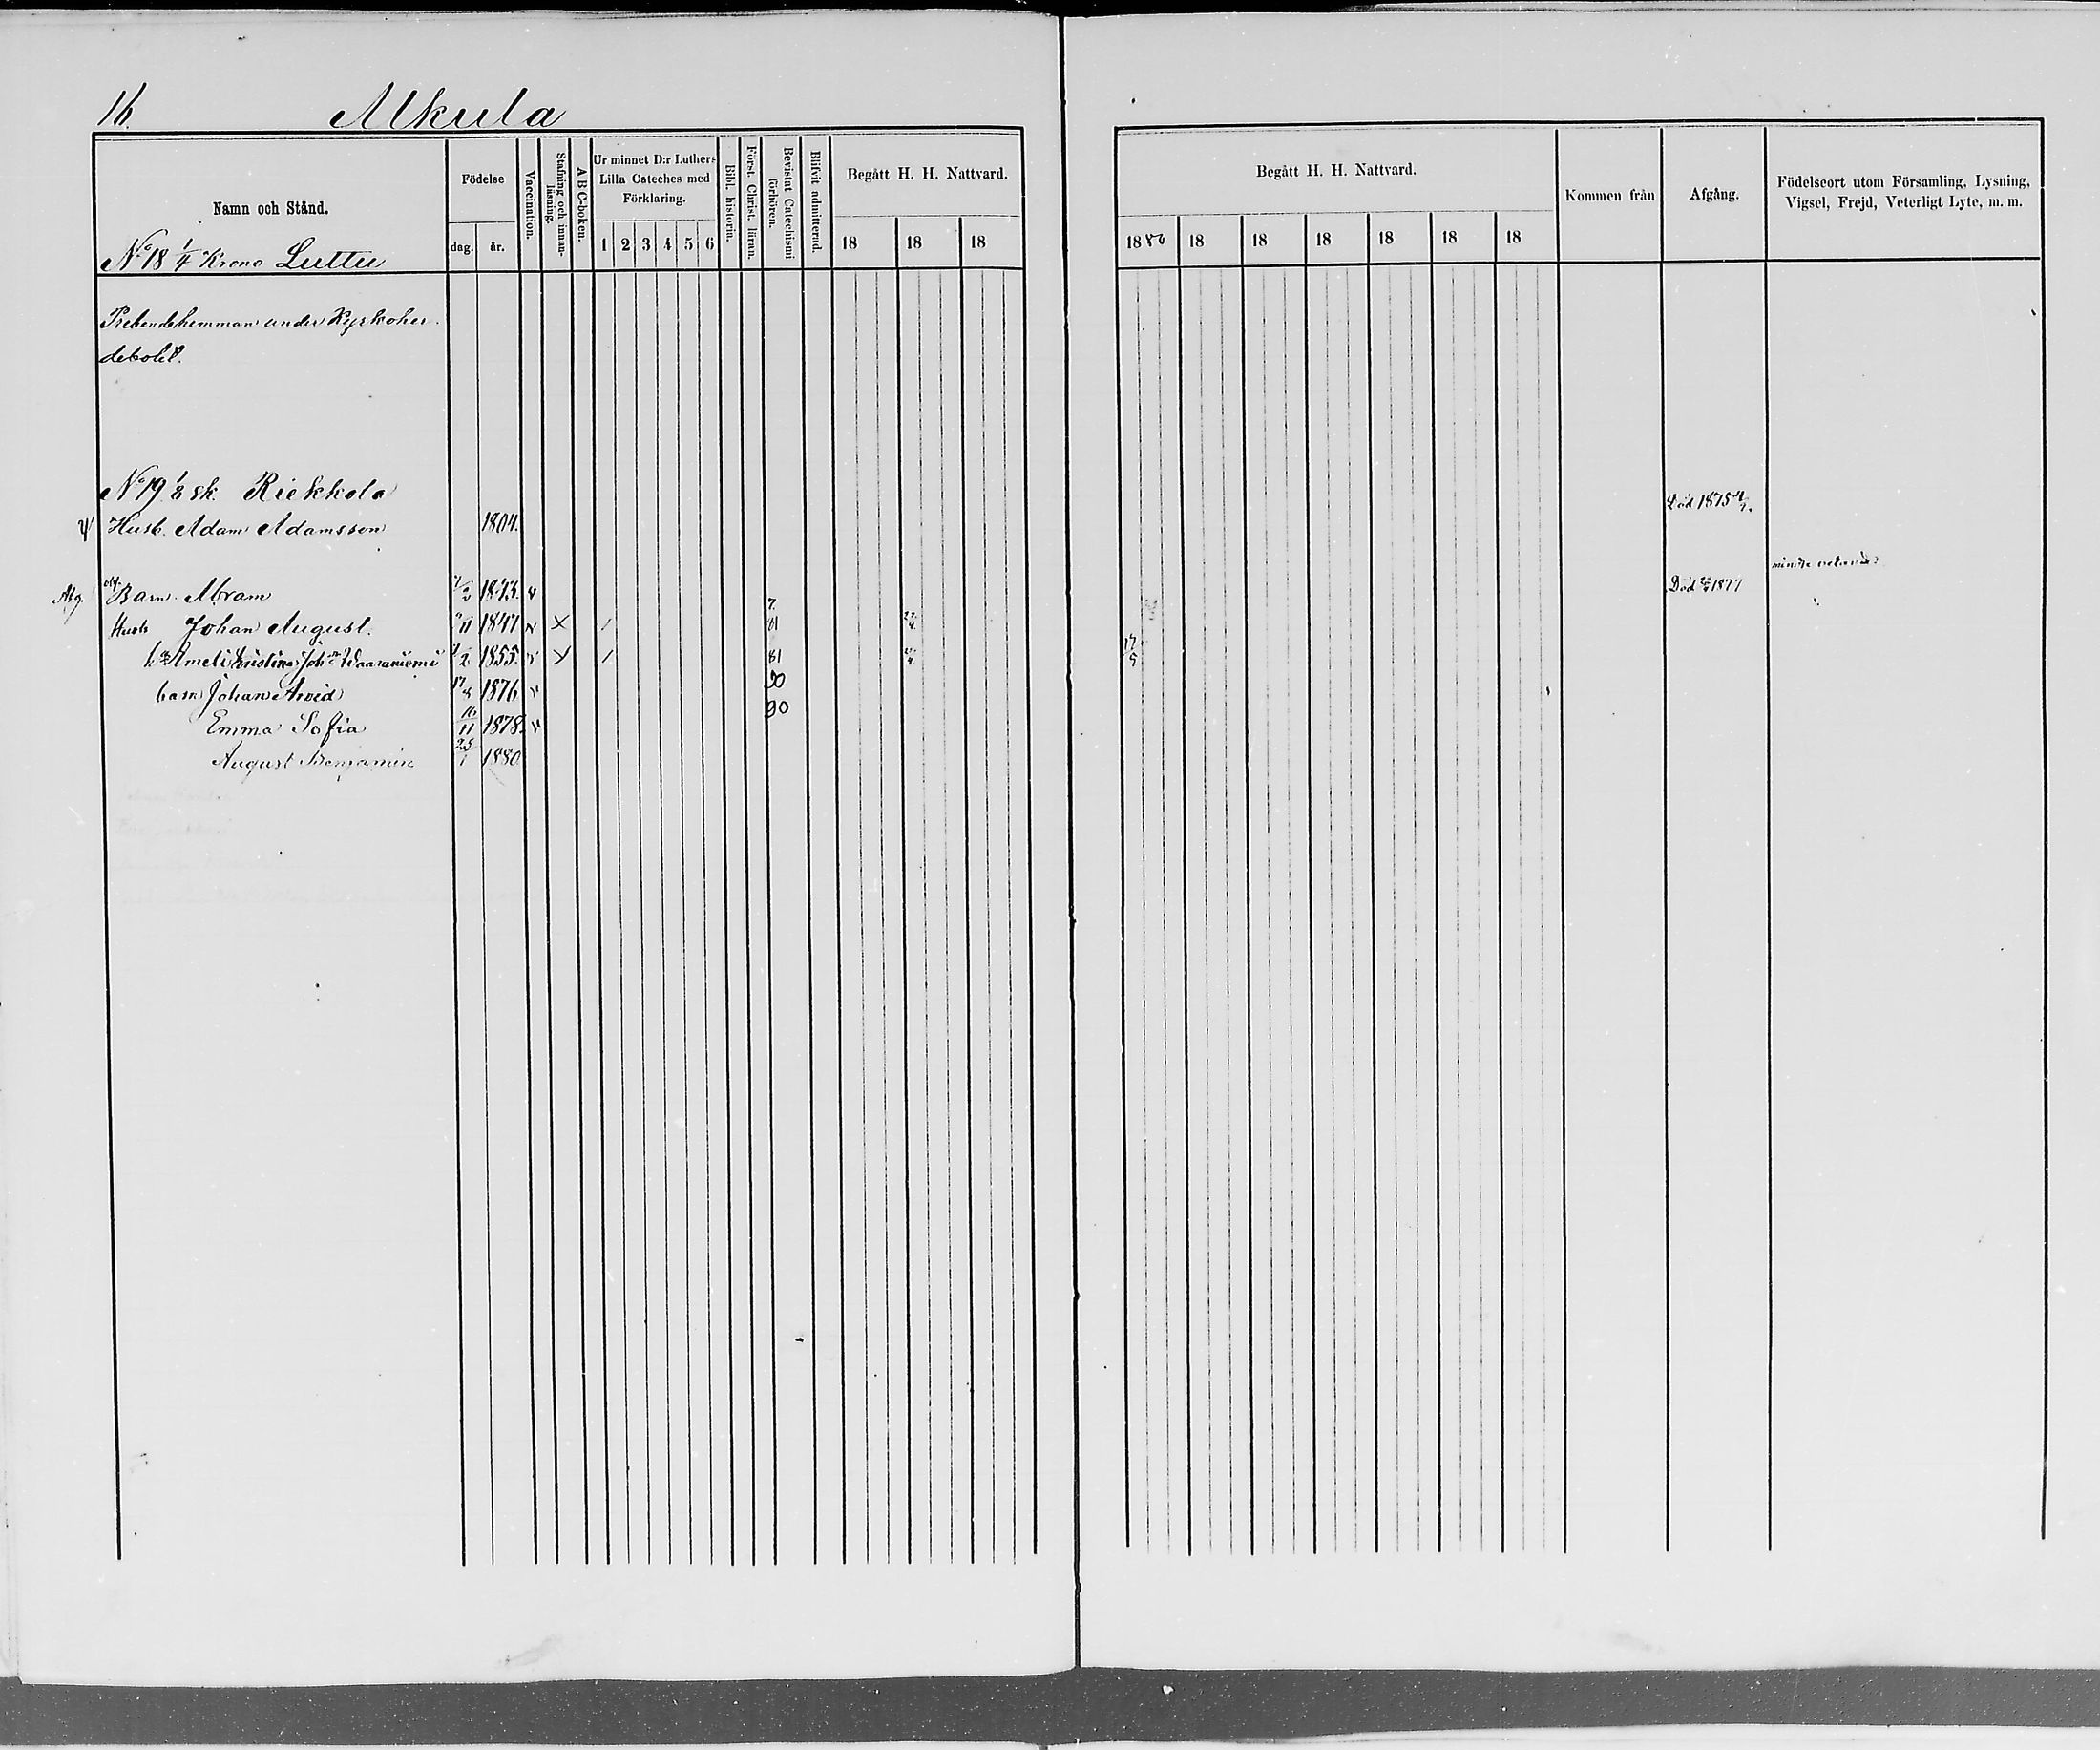 16.
Alkula
Namn och Stånd.
Födelse
dag.
år.
Vaccination.
Stafning och innan-
läsning.
A B C-boken.
Ur minnet D:r Luthers
Lilla Cateches med
Förklaring.
1 2 3 4 5 6
Bibl. historia.
Först. Christ. läran.
Bevistat Catechismi
förhören.
Blifvit admitterad.
Begått H. H. Nattvard.
18 18 18
Begått H. H. Nattvard.
1880 18 18 18 18 18 18
Kommen från
Afgång.
Födelseort utom Församling, Lysning,
Vigsel, Frejd, Veterligt Lyte, m. m.
No 18 1/4 Krono Luttu
Prebendehemman under Kyrkoher-
debolet.
No 19 1/8 sk. Riekkola
Husb. Adam Adamsson 1804. Död 1875
Afg. Barn Abram 1843. v Död 1877
Husb Johan August. 11 1847 v x / 81
1855. v x / 81 17/5
barn Johan Arvid 17/8 1876 v 90
Emma Sofia 16/11 1878. v 90
August Benjamin 25/1 1880